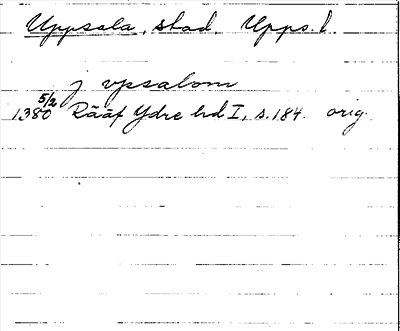 Uppsala, stad. Upps. l.
j vpsalom
1380 5/2 Rääf Ydre hd I, s. 184. orig.